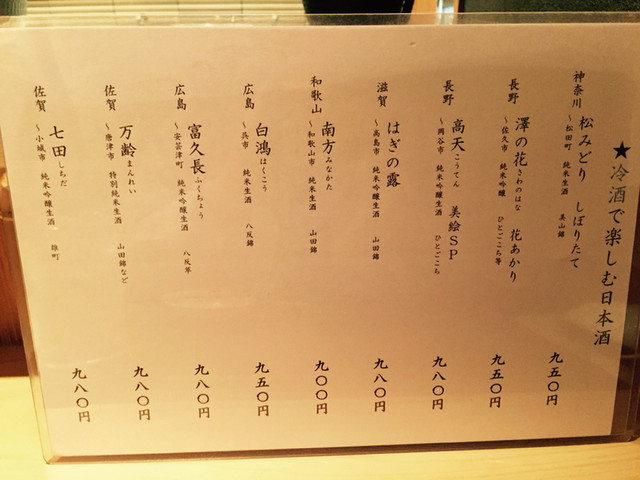 ★冷酒で楽しむ日本酒
神奈川 松みどり しぼりたて 九五〇円
～松田町 純米生酒 美山錦
長野 澤の花 さわのはな 花あかり 九五〇円
～佐久市 純米吟醸 ひとごこち等
長野 高天 こうてん 美絵SP 九八〇円
～岡谷市 純米吟醸生酒 ひとごこち
滋賀 はぎの露 九八〇円
～高島市 純米吟醸生酒 山田錦
和歌山 南方 みなかた 九〇〇円
～和歌山市 純米生酒 山田錦
広島 白鴻 はくこう 九五〇円
～呉市 純米生酒 八反錦
広島 富久長 ふくちょう 九八〇円
～安芸津町 純米吟醸生酒 八反草
佐賀 万齢 まんれい 九八〇円
～唐津市 特別純米生酒 山田錦など
佐賀 七田 しちだ 九八〇円
～小城市 純米吟醸生酒 雄町